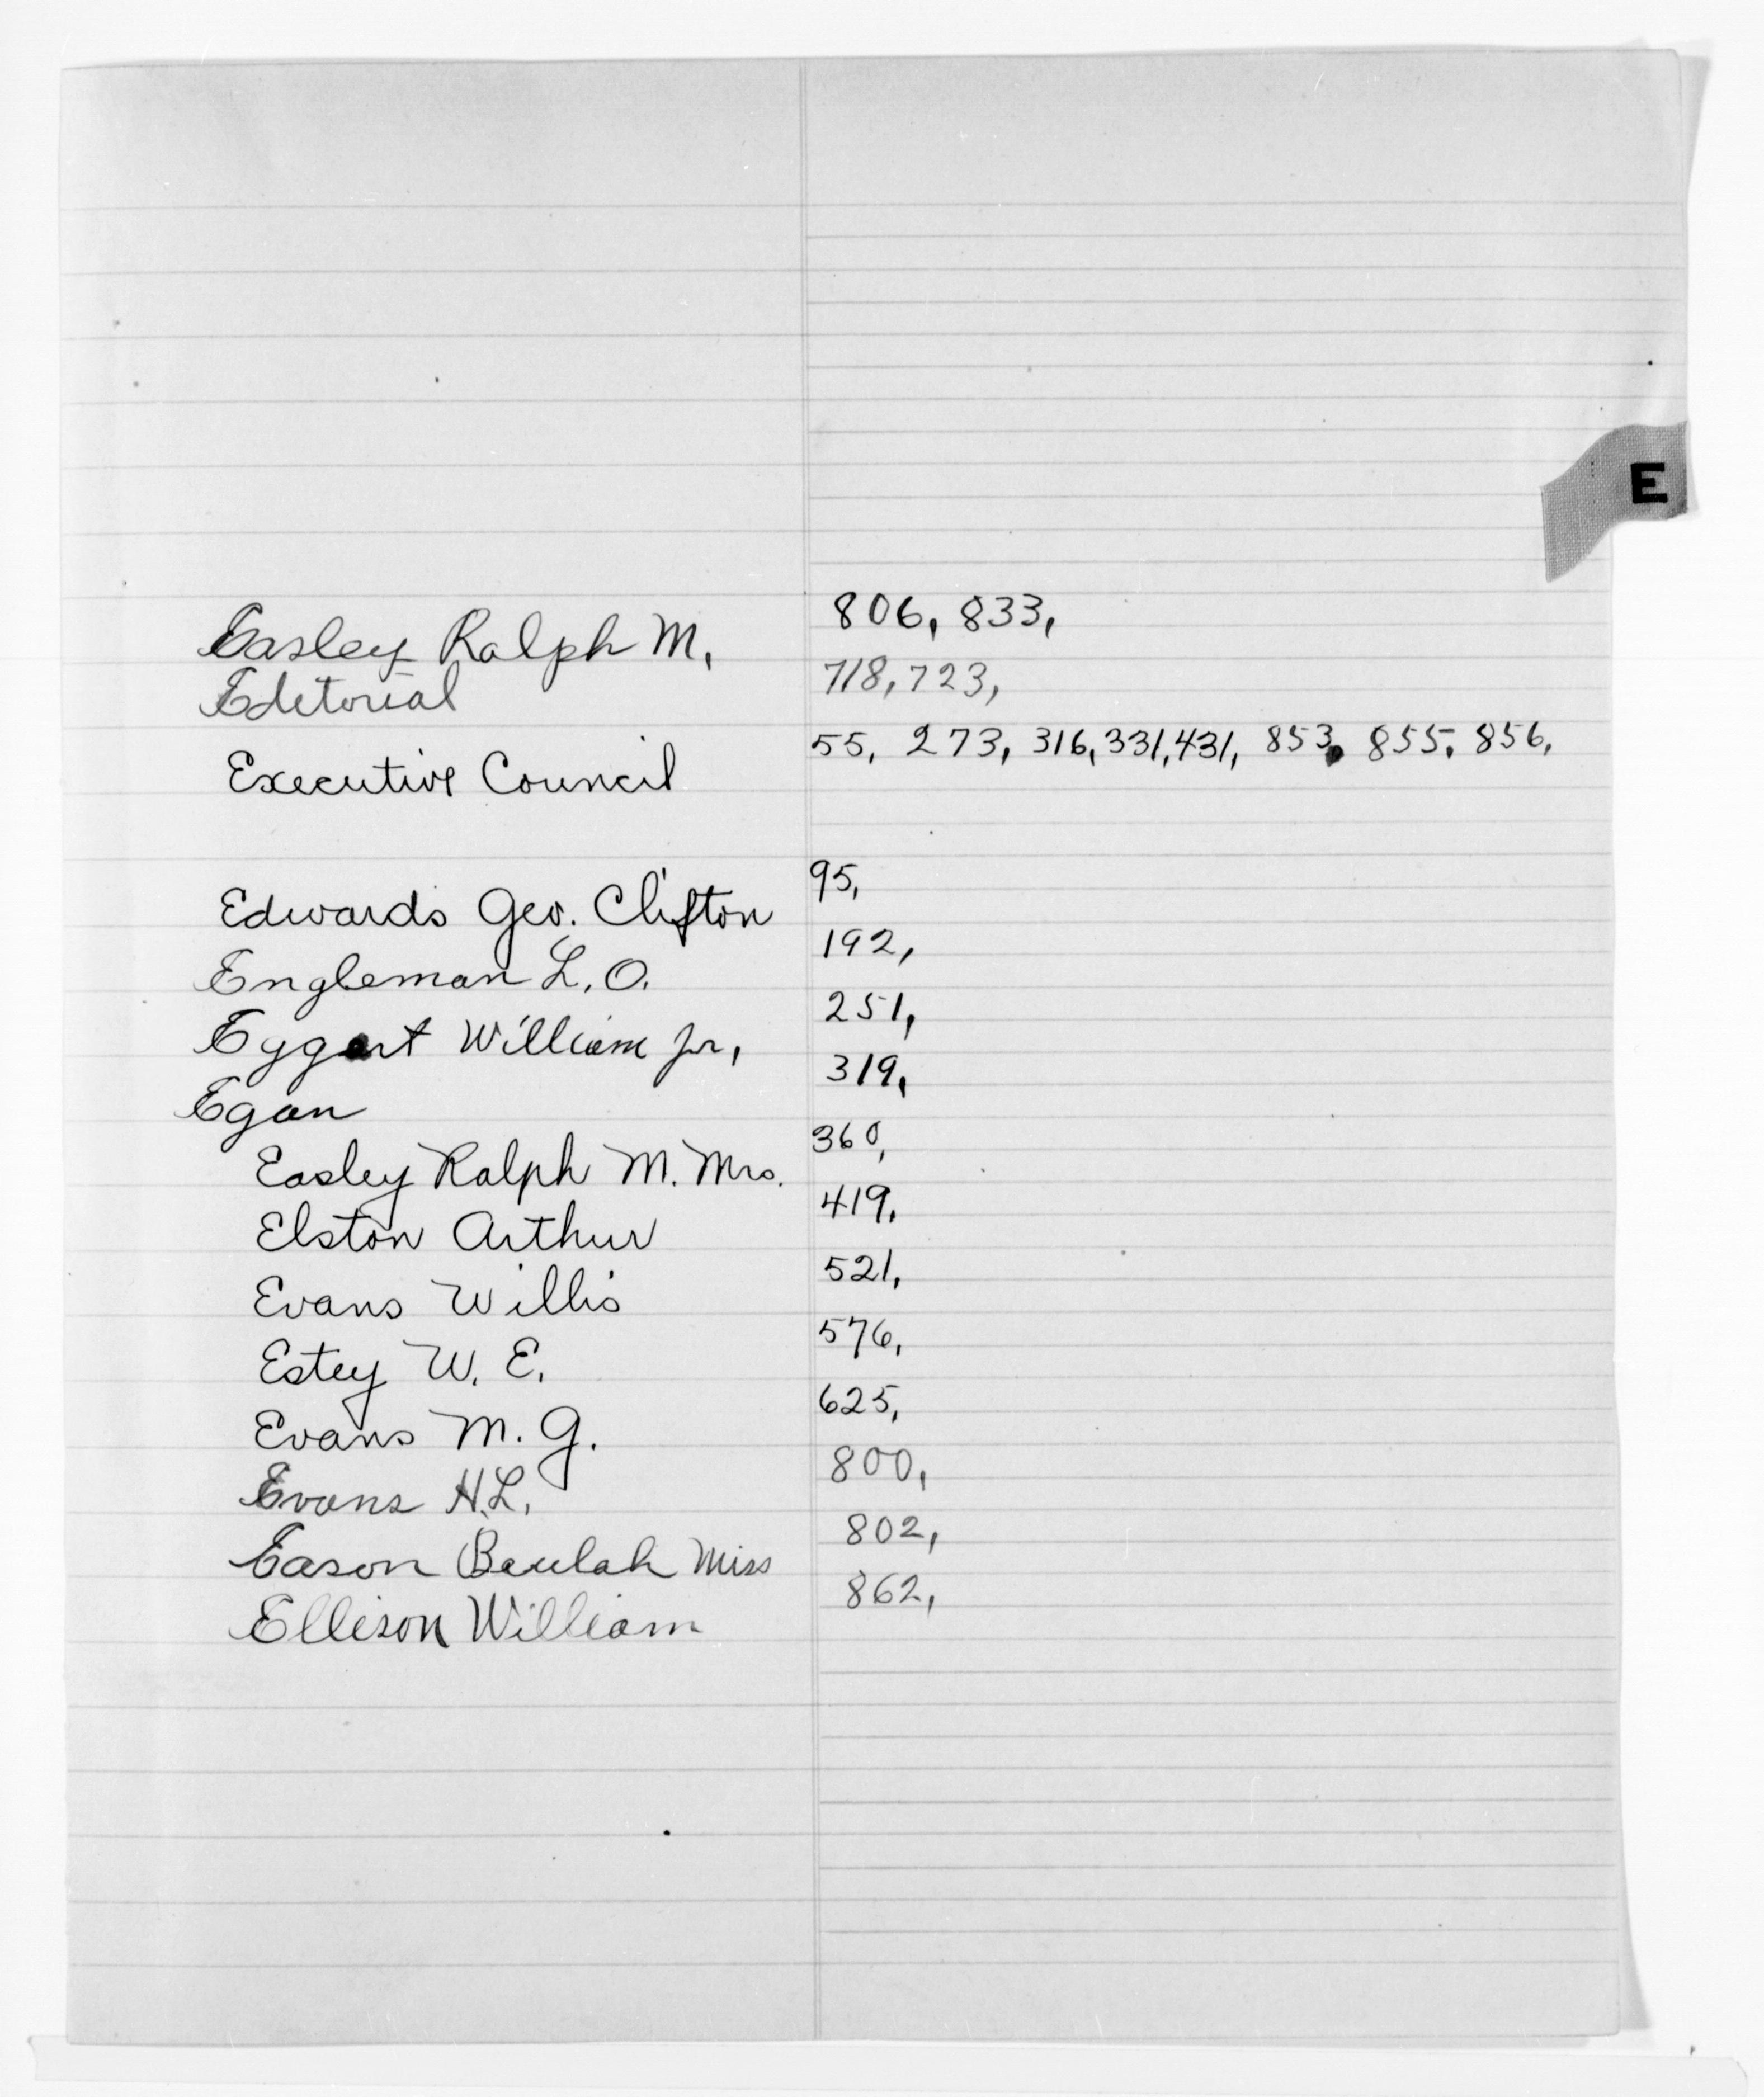 E
Easley Ralph M. 806, 833,
Editorial 718, 723,
Executive Council 55, 273, 316, 331, 431, 853, 855, 856,
Edwards Geo. Clifton 95,
Engleman L. O. 192,
Eggert William Jr, 251,
Egan 319,
Easley Ralph M. Mrs. 360,
Elston Arthur 419,
Evans Willis 521,
Estey W. E. 576,
Evans M. G. 625,
Evans H. L. 800,
Eason Beulah Miss 802,
Ellison William 862,